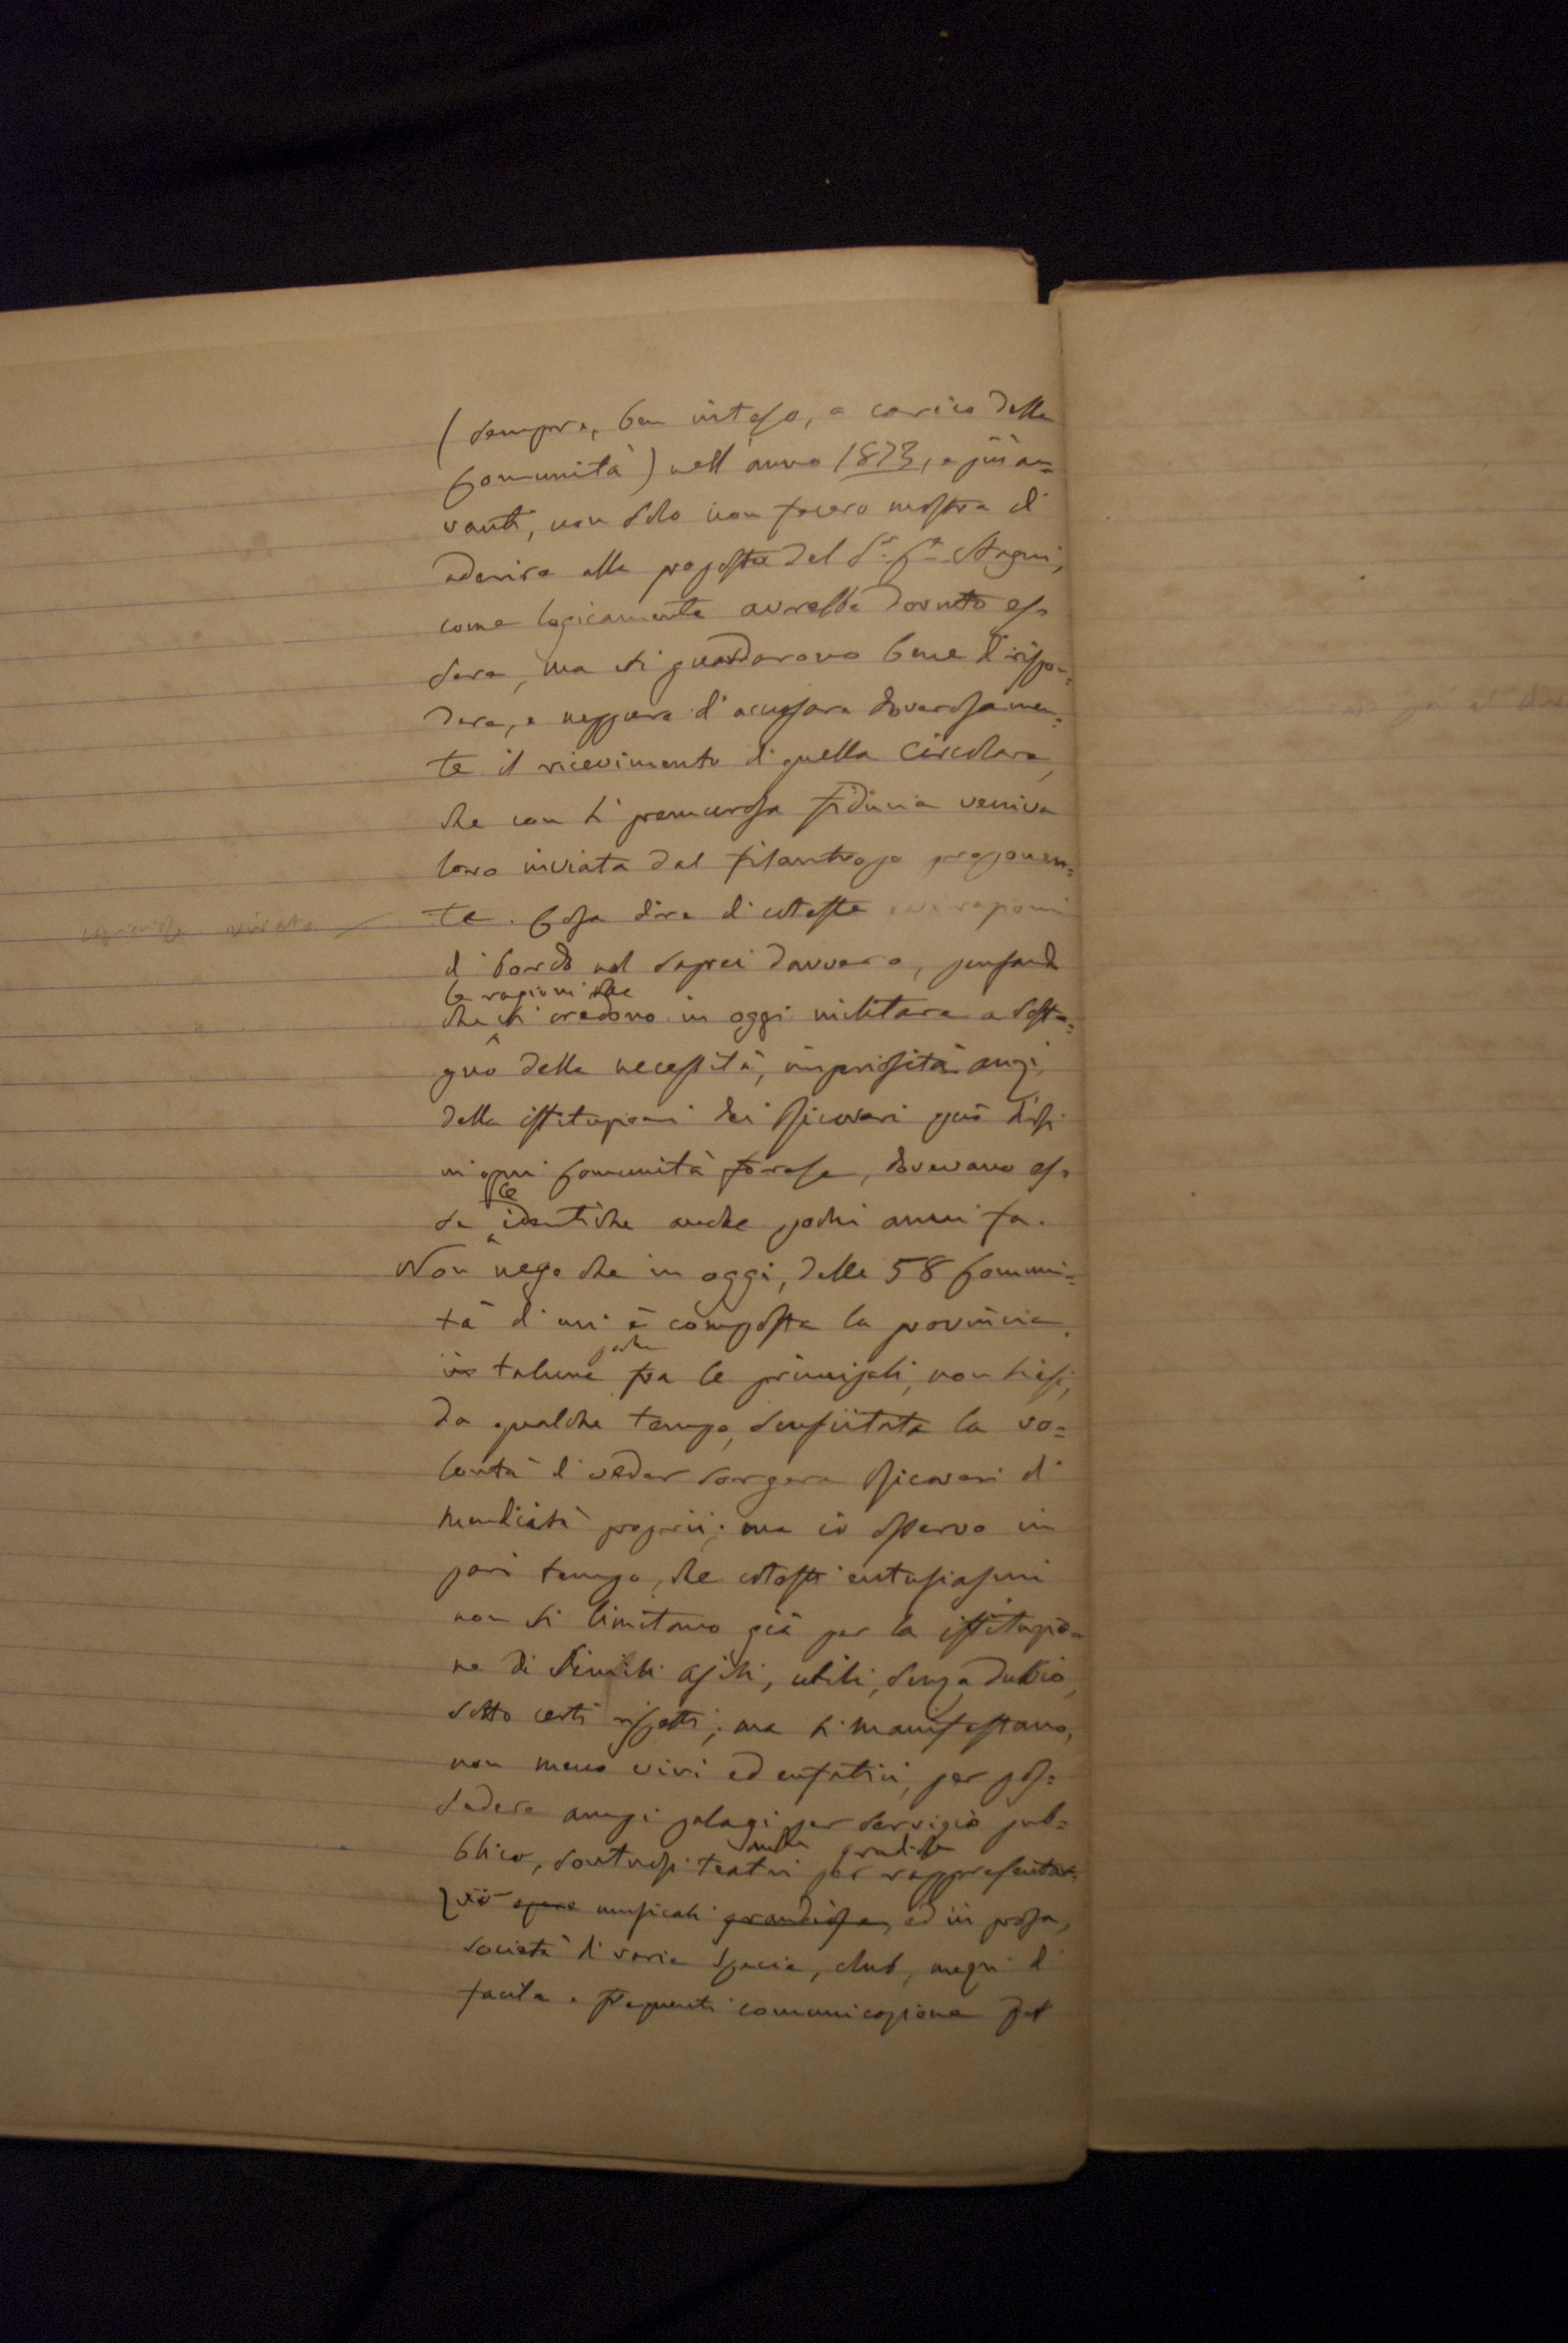 (sempre, ben inteso, a carico delle
Comunità) nell'anno 1873, e più a=
vanti, non solo non fecero mostra di
aderire alla proposta del Sr. Cte
come logicamente avrebbe dovuto es=
sere, ma si guardarono bene di rispon=
dere, e neppure d'accusare doverosamen=
te il ricevimento di quella Circolare,
che con sì premurosa fiducia veniva
loro inviata dal filantropo proponen=
te. Cosa dire di coteste
di bordo nol saprei davvero, pensando
le ragioni che
che si credono in oggi militare a soste=
gno della necessità, impriosità anzi,
della istituzioni dei Ricoveri quà dissi
in ogni Comunità forese, dovevano es=
se identiche anche pochi anni fa.
Non nego che in oggi, delle 58 Comuni=
tà di cui è composta la provincia,
poche
in talune fra le principali, non siasi,
da qualche tempo, suscitata la vo=
lontà di veder sorgere Ricoveri di
mendicità proprii; ma io osservo in
pari tempo, che cotesti entusiasmi
non si limitano già per la istituzio=
ne di simili asili, utili, senza dubbio,
sotto certi rispetti; ma si manifestano,
non meno vivi ed enfatici, per pos=
sedere ampi palagi per servigio pub=
blico, sontuosi teatri per rappresentar=
vi opere musicali grandiose, ed in prosa,
società di varie specie, club, mezzi di
facile e frequenti comunicazione